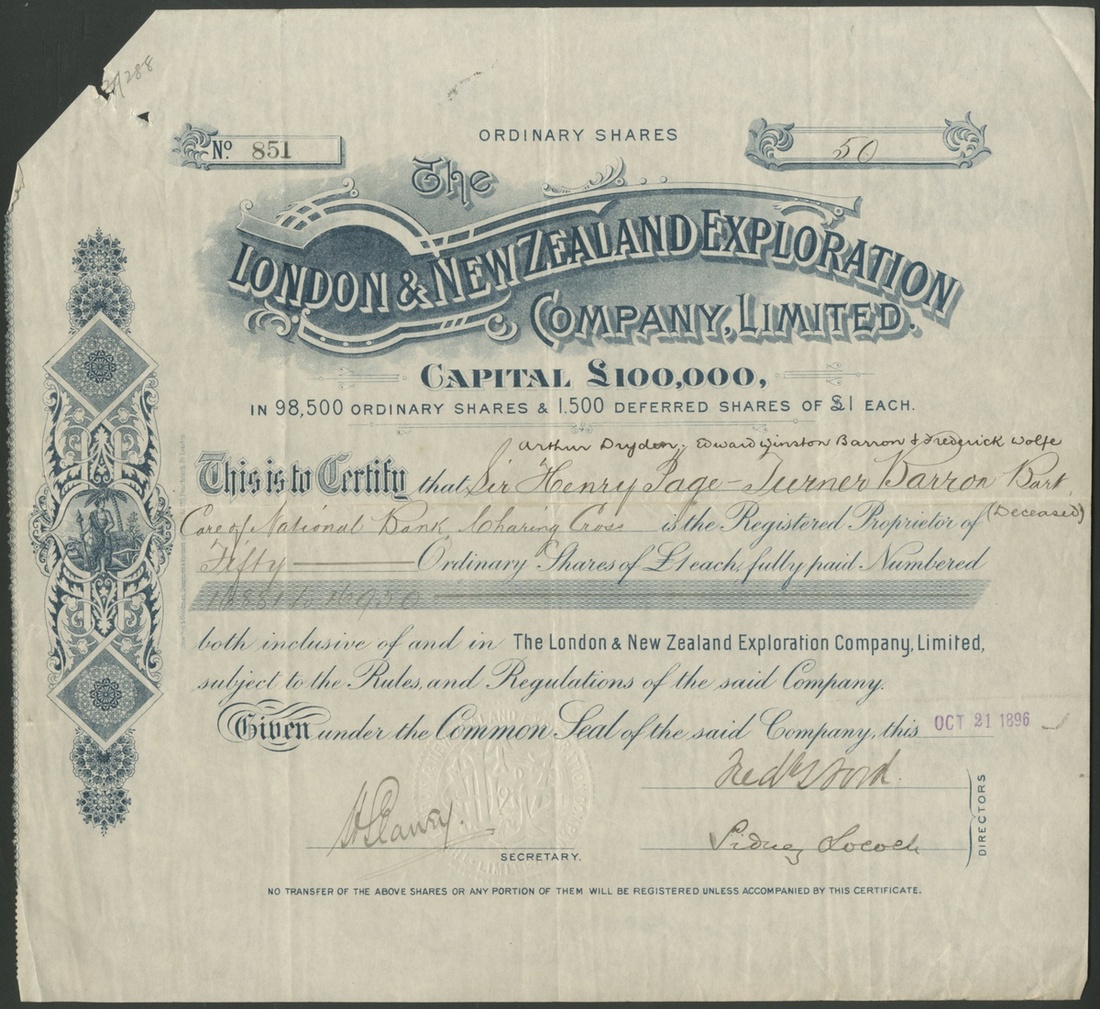 21288
ORDINARY SHARES
No. 851
50
The
LONDON & NEW ZEALAND EXPLORATION
COMPANY, LIMITED.
CAPITAL £100,000,
IN 98,500 ORDINARY SHARES & 1.500 DEFERRED SHARES OF £1 EACH.
Arthur Dryden, Edward Winston Barron & Frederick Wolfe
This is to Certify that Sir Henry Page-Turner Barron Bart
Care of National Bank, Charing Cross is the Registered Proprietor of (Deceased)
Fifty Ordinary Shares of £1 each, fully paid Numbered
16851 to 16950
both inclusive of and in The London & New Zealand Exploration Company, Limited,
subject to the Rules, and Regulations of the said Company.
Given under the Common Seal of the said Company, this OCT 21 1896
SECRETARY.
Sidney Locock
DIRECTORS
NO TRANSFER OF THE ABOVE SHARES OR ANY PORTION OF THEM WILL BE REGISTERED UNLESS ACCOMPANIED BY THIS CERTIFICATE.